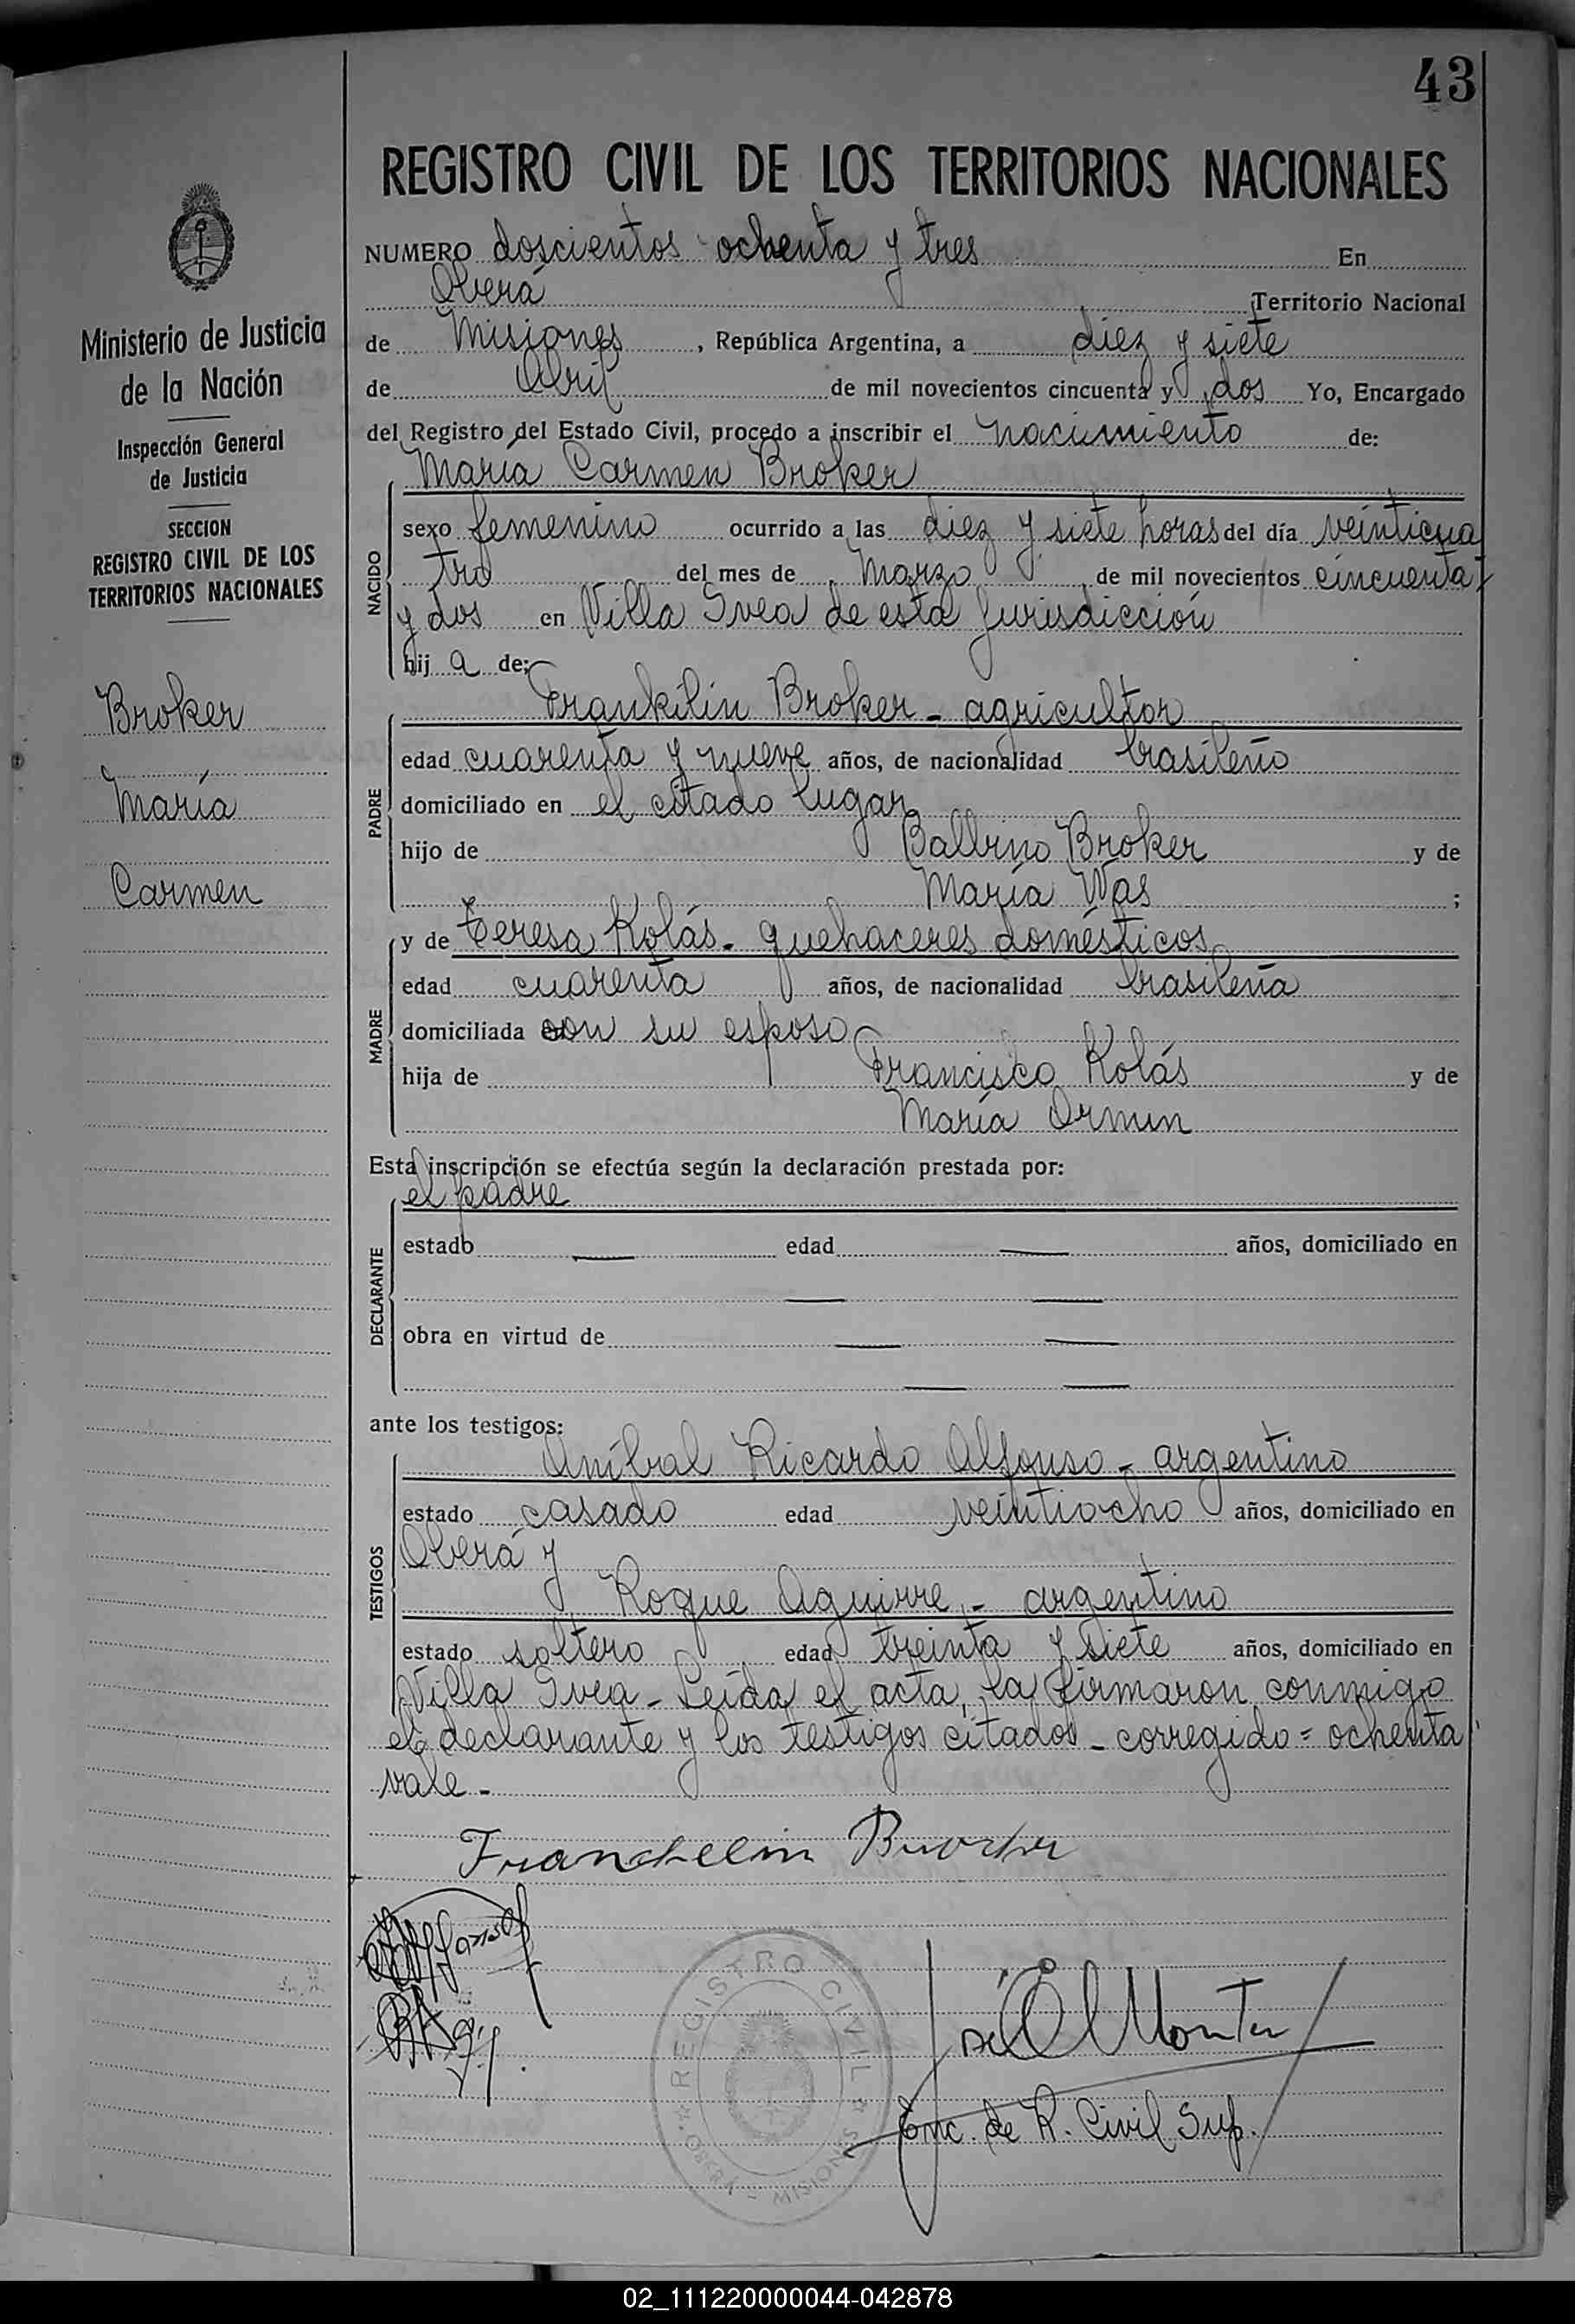 43
REGISTRO CIVIL DE LOS TERRITORIOS NACIONALES
Ministerio de Justicia
de la Nación
Inspección General
de Justicia
SECCION
REGISTRO CIVIL DE LOS
TERRITORIOS NACIONALES
Broker
María
Carmen
NUMERO doscientos ochenta y tres En
Oberá Territorio Nacional
de Misiones, República Argentina, a diez y siete
de Abril de mil novecientos cincuenta y dos Yo, Encargado
del Registro del Estado Civil, procedo a inscribir el nacimiento de:
María Carmen Broker
NACIDO
sexo femenino ocurrido a las diez y siete horas del día veinticua
tro del mes de Marzo de mil novecientos cincuenta
y dos en Villa Svea de esta Jurisdicción
hij a de:
Frankilin Broker - agricultor
PADRE
edad cuarenta y nueve años, de nacionalidad brasileño
domiciliado en el citado lugar
hijo de Balbino Broker y de
María Was ;
y de Teresa Kolás - quehaceres domésticos
MADRE
edad cuarenta años, de nacionalidad brasileña
domiciliada con su esposo
hija de Francisco Kolás y de
María Ormun
Esta inscripción se efectúa según la declaración prestada por:
el padre
DECLARANTE
estado — edad — años, domiciliado en
— —
obra en virtud de — —
— —
ante los testigos:
Aníbal Ricardo Alfonso - argentino
TESTIGOS
estado casado edad veintiocho años, domiciliado en
Oberá y
Roque Aguirre - argentino
estado soltero edad treinta y siete años, domiciliado en
Villa Svea - Leída el acta, la firmaron conmigo
el declarante y los testigos citados - corregido = ochenta
vale -
Franchelin
REGISTRO CIVIL
OBERÁ - MISIONES
José
Enc. de R. Civil Sup.
02_111220000044-042878